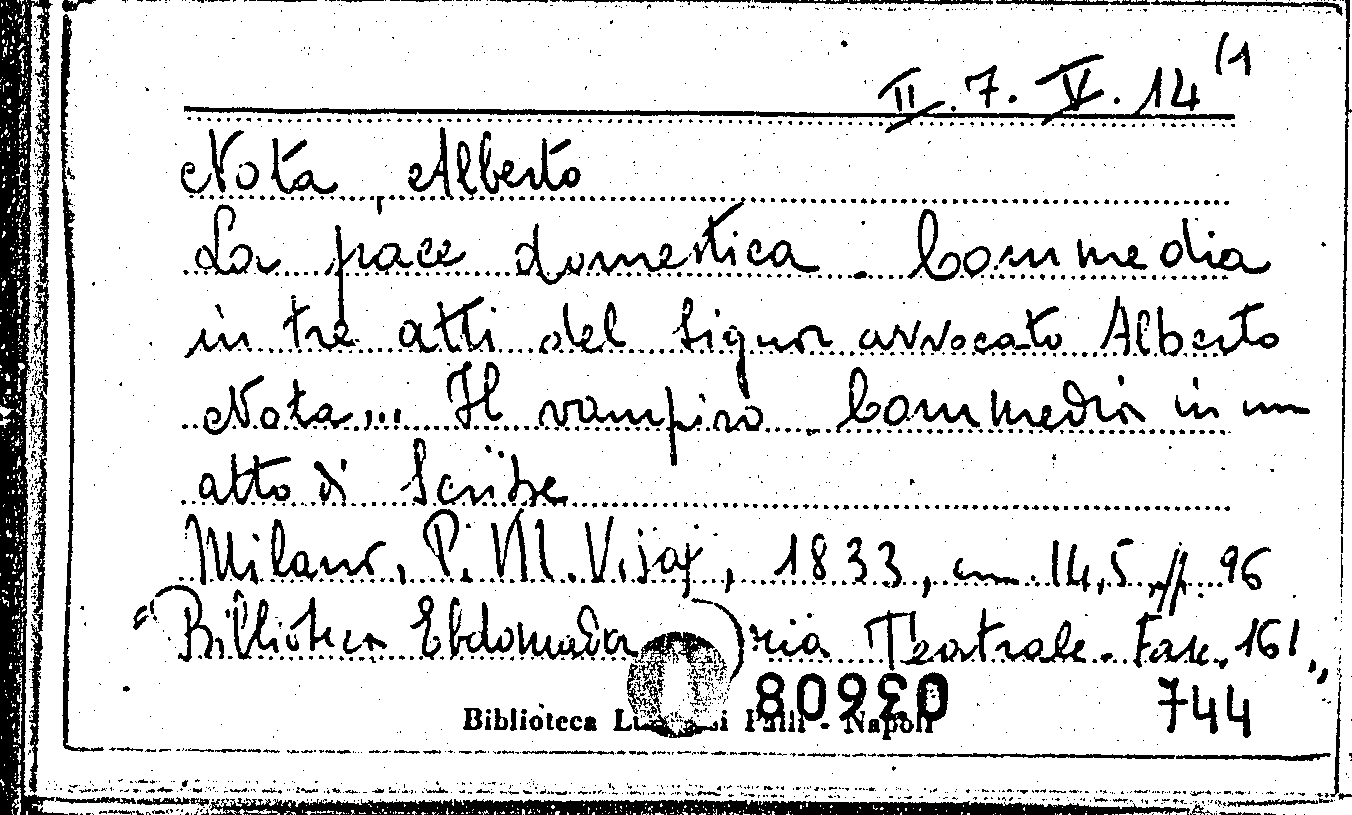 II. 7. V. 14 (1
Nota, Alberto
La pace domestica. Commedia
in tre atti del Signor avvocato Alberto
Nota... Il vampiro. Commedia in un
atto di Scribe
Milano, P. M. Visaj, 1833, cm. 14,5 pp. 96
"Biblioteca Ebdomadaria Teatrale. Fasc. 161"
744
Biblioteca Palli - Napoli